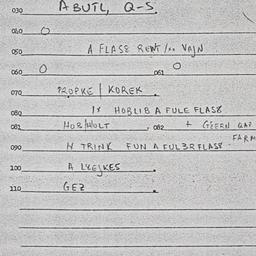 030 ABUTL, Q-S
040
050 A FLASE RENT /.. VAJN
060 061
070 PROPKE / KOREK
080 1x HOBLIB A FULE FLASE
081 HOB/WOLT, 082 + GEERN GAZ
FARM
090 N TRINK FUN A FULBRFLASE
100 A LKEJKES
110 GEZ